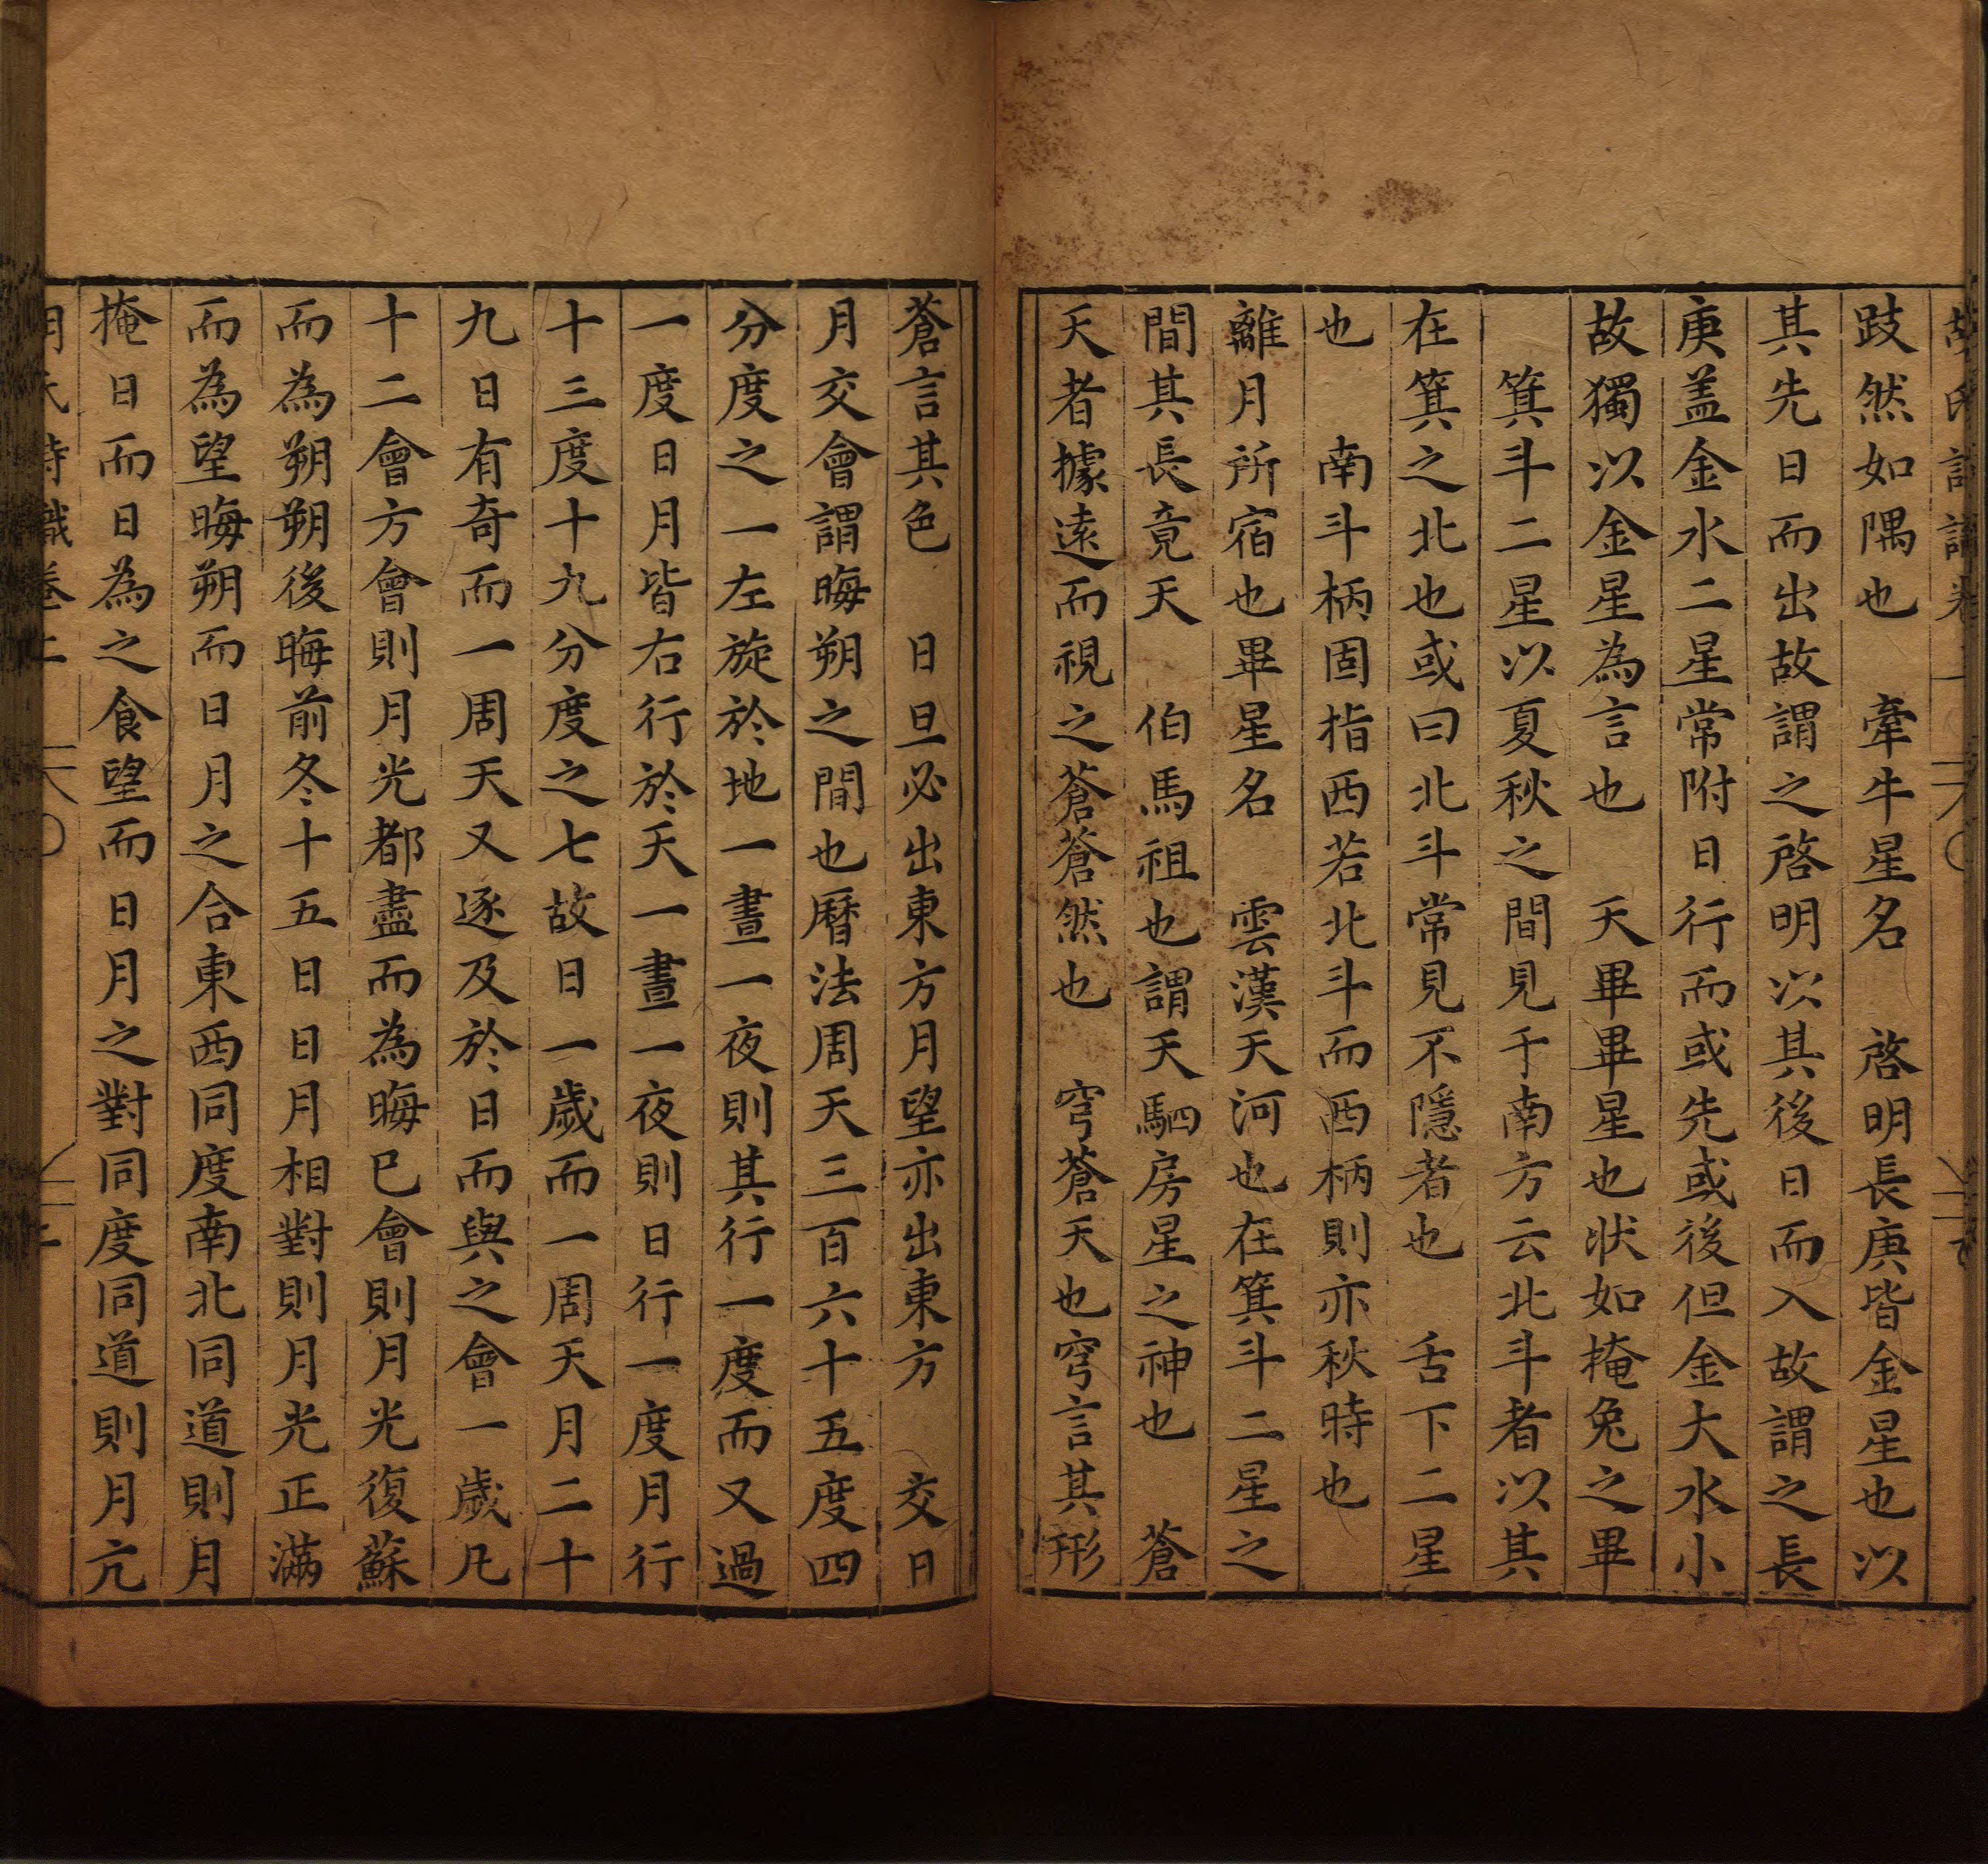 跂然如隅也　牽牛星名　啓明長庚皆金星也以
其先日而出故謂之啓明以其後日而入故謂之長
庚盖金水二星常附日行而或先或後但金大水小
故獨以金星為言也　天畢畢星也狀如掩兔之畢
　箕斗二星以夏秋之間見于南方云北斗者以其
在箕之北也或曰北斗常見不隱者也　舌下二星
也　南斗柄固指西若北斗而西柄則亦秋時也
離月所宿也畢星名　雲漢天河也在箕斗二星之
間其長竟天　伯馬祖也謂天駟房星之神也　蒼
天者據遠而視之蒼蒼然也　穹蒼天也穹言其形
蒼言其色　日旦必出東方月望亦出東方　交日
月交會謂晦朔之間也曆法周天三百六十五度四
分度之一左旋於地一晝一夜則其行一度而又過
一度日月皆右行於天一晝一夜則日行一度月行
十三度十九分度之七故日一歲而一周天月二十
九日有奇而一周天又逐及於日而與之會一歲凡
十二會方會則月光都盡而為晦已會則月光復蘇
而為朔朔後晦前冬十五日日月相對則月光正滿
而為望晦朔而日月之合東西同度南北同道則月
掩日而日為之食望而日月之對同度同道則月亢